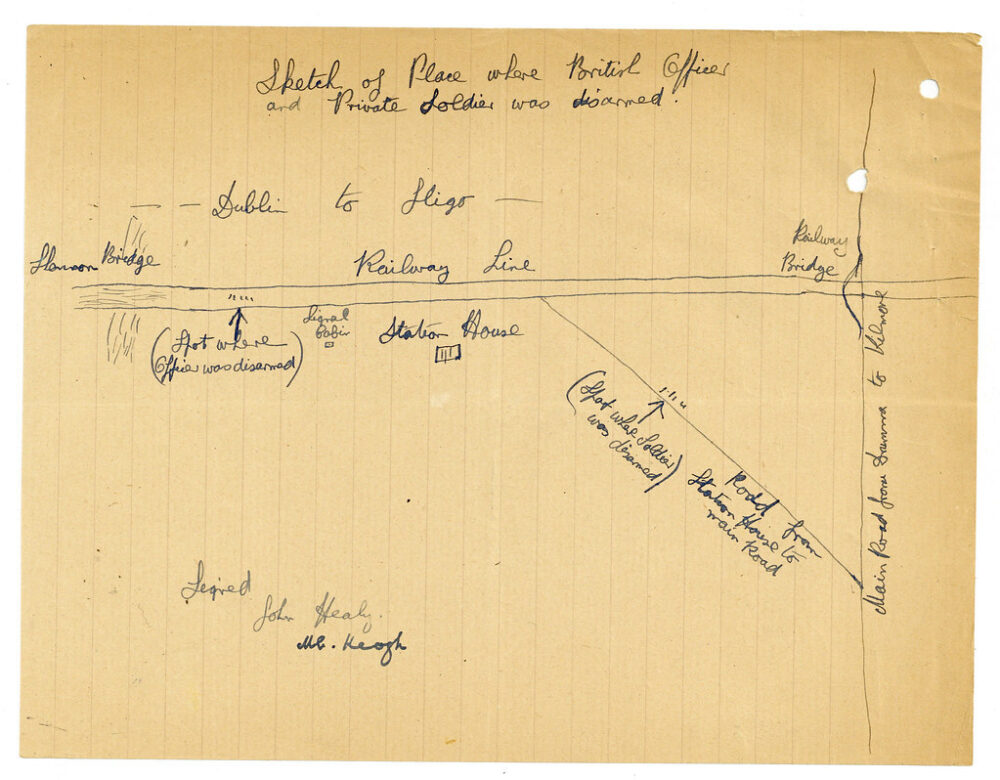 Sketch of Place where British Officer
and Private Soldier was disarmed.
— — Dublin to Sligo —
Shannon Bridge
Railway Line
Railway
Bridge
Signal
Cabin
Station House
(Spot where
Officer was disarmed)
(Spot where Soldier
was disarmed)
Road from
Station House to
main Road
Main Road from Drumna to Kilmore
Signed
John Healy.
Ml. Keogh